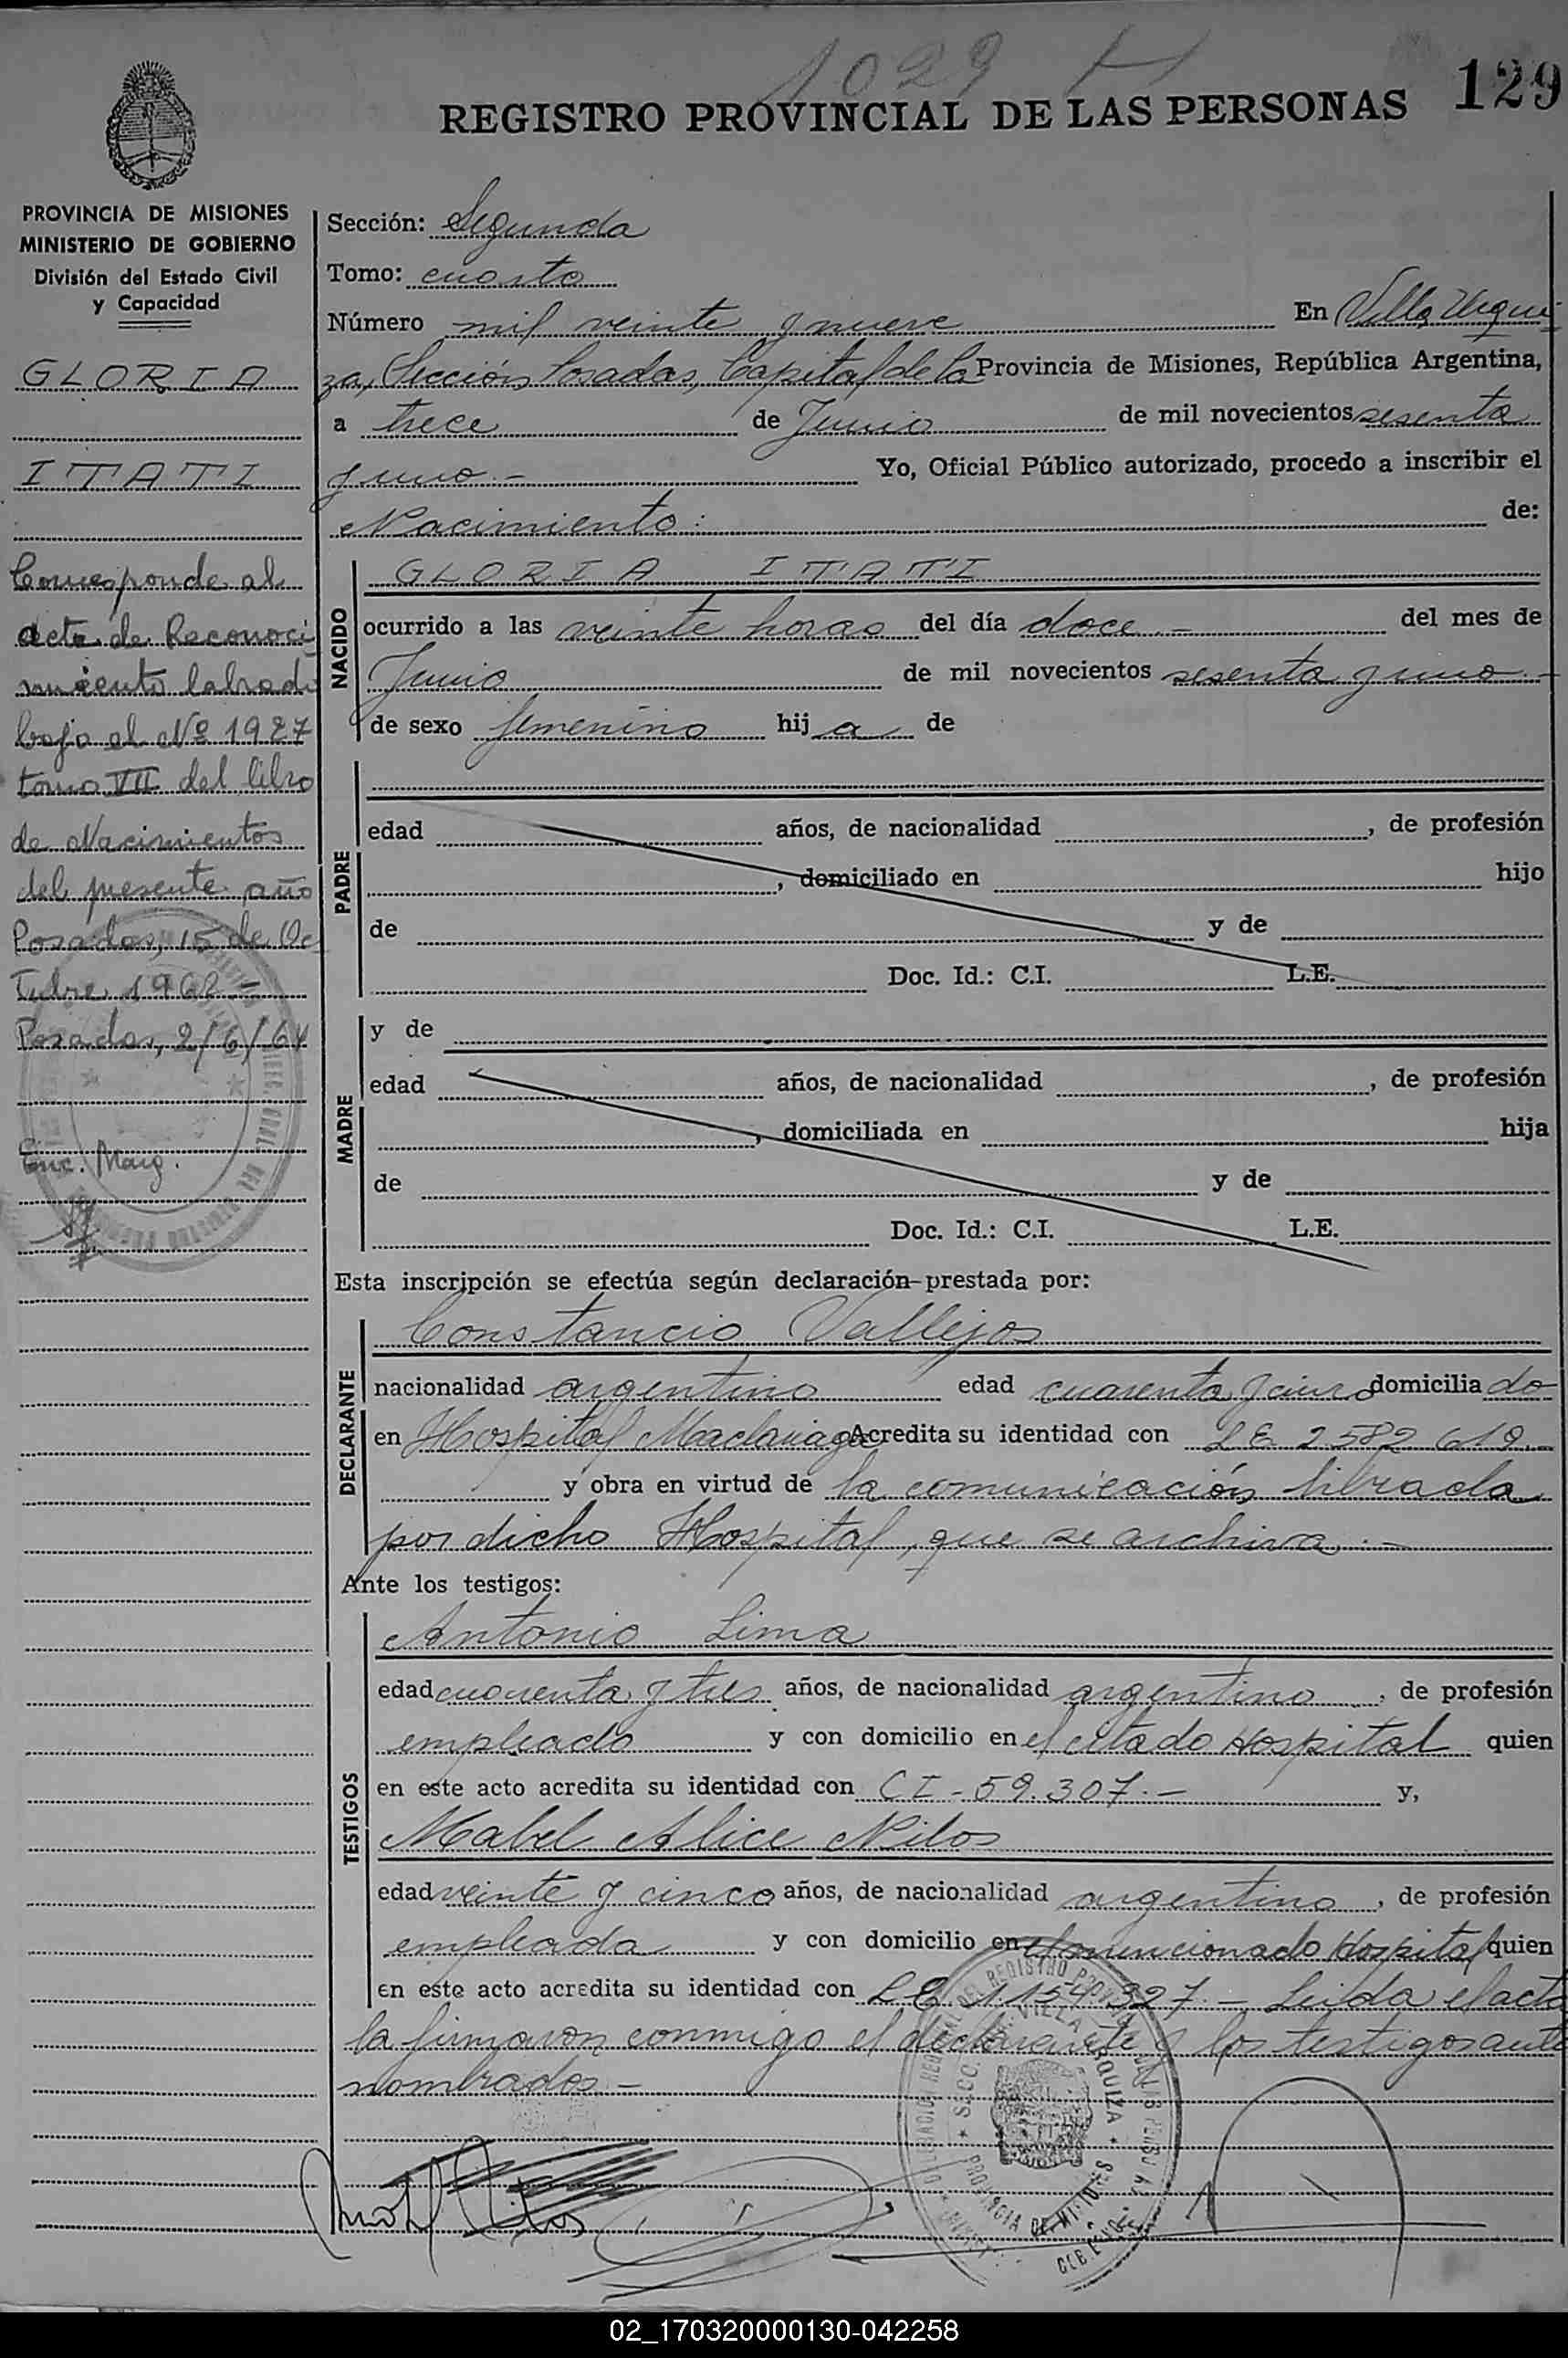 1029
129
REGISTRO PROVINCIAL DE LAS PERSONAS
PROVINCIA DE MISIONES
MINISTERIO DE GOBIERNO
División del Estado Civil
y Capacidad
GLORIA
ITATI
Corresponde al
acta de Reconoci
miento labrado
bajo el Nº 1927
tomo VII del libro
de Nacimientos
del presente año
Posadas, 15 de Oc
tubre 1962.-
Posadas, 2/6/64
Enc. Marg.
Sección: Segunda
Tomo: cuarto
Número mil veinte y nueve En Villa Urqui
za, Sección Posadas, Capital de la Provincia de Misiones, República Argentina,
a trece de Junio de mil novecientos sesenta
y uno.- Yo, Oficial Público autorizado, procedo a inscribir el
Nacimiento: de:
NACIDO
GLORIA ITATI
ocurrido a las veinte horas del día doce.- del mes de
Junio de mil novecientos sesenta y uno.-
de sexo femenino hij a de
PADRE
edad años, de nacionalidad , de profesión
, domiciliado en hijo
de y de
Doc. Id.: C.I. L.E.
MADRE
y de
edad años, de nacionalidad , de profesión
, domiciliada en hija
de y de
Doc. Id.: C.I. L.E.
Esta inscripción se efectúa según declaración prestada por:
DECLARANTE
Constancio Vallejos
nacionalidad argentino edad cuarenta y cinco domicilia do
en Hospital Madariaga Acredita su identidad con LE 2582619.-
y obra en virtud de la comunicación librada
por dicho Hospital, que se archiva.-
Ante los testigos:
TESTIGOS
Antonio Lima
edad cuarenta y tres años, de nacionalidad argentino , de profesión
empleado y con domicilio en el citado Hospital quien
en este acto acredita su identidad con CI-59.307.- y,
Mabel Alice Nilos
edad veinte y cinco años, de nacionalidad argentina , de profesión
empleada y con domicilio en el mencionado Hospital quien
en este acto acredita su identidad con LE 1154327.- Leída el acta
la firmaron conmigo el declarante y los testigos ante
nombrados.-
02_170320000130-042258